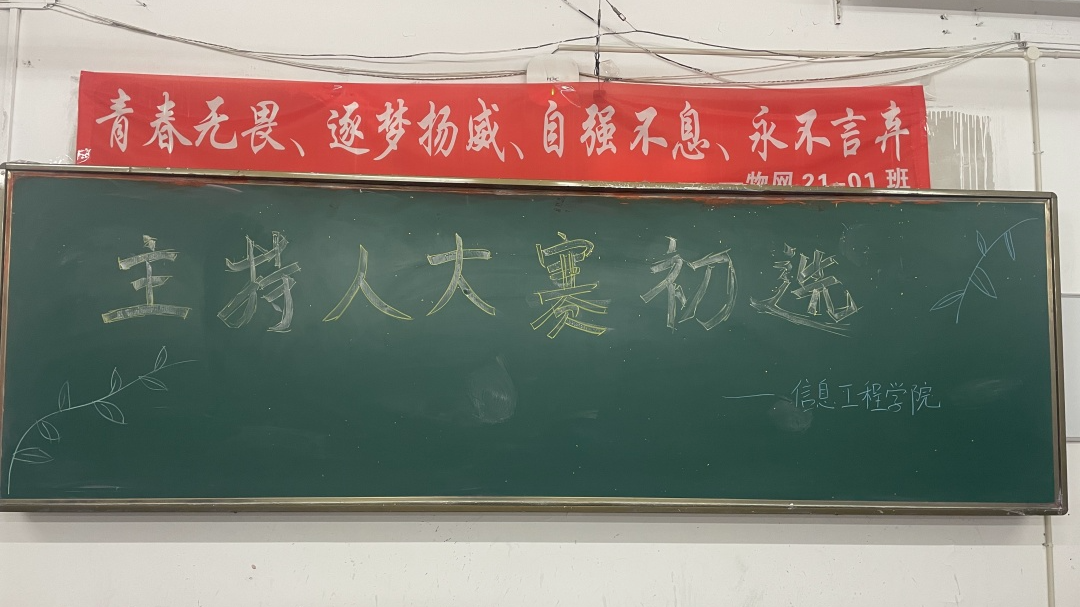 青春无畏、逐梦扬威、自强不息、永不言弃
物网21-01班
主持人大赛初选
——信息工程学院